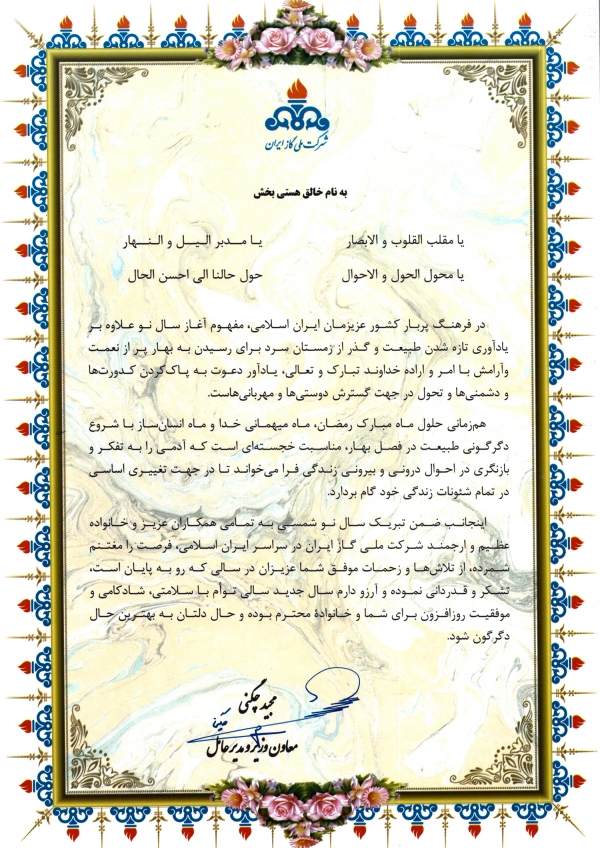 شرکت ملی گاز ایران
به نام خالق هستی بخش
یا مقلب القلوب و الابصار یا مدبر الیل و النهار
یا محول الحول و الاحوال حول حالنا الی احسن الحال
در فرهنگ پربار کشور عزیزمان ایران اسلامی، مفهوم آغاز سال نو علاوه بر
یادآوری تازه شدن طبیعت و گذر از زمستان سرد برای رسیدن به بهار پر از نعمت
وآرامش با امر و اراده خداوند تبارک و تعالی، یادآور دعوت به پاک‌کردن کدورت‌ها
و دشمنی‌ها و تحول در جهت گسترش دوستی‌ها و مهربانی‌هاست.
هم‌زمانی حلول ماه مبارک رمضان، ماه میهمانی خدا و ماه انسان‌ساز با شروع
دگرگونی طبیعت در فصل بهار، مناسبت خجسته‌ای است که آدمی را به تفکر و
بازنگری در احوال درونی و بیرونی زندگی فرا می‌خواند تا در جهت تغییری اساسی
در تمام شئونات زندگی خود گام بردارد.
اینجانب ضمن تبریک سال نو شمسی به تمامی همکاران عزیز و خانواده
عظیم و ارجمند شرکت ملی گاز ایران در سراسر ایران اسلامی، فرصت را مغتنم
شمرده، از تلاش‌ها و زحمات موفق شما عزیزان در سالی که رو به پایان است،
تشکر و قدردانی نموده و آرزو دارم سال جدید سالی توأم با سلامتی، شادکامی و
موفقیت روزافزون برای شما و خانوادهٔ محترم بوده و حال دلتان به بهترین حال
دگرگون شود.
مجید چگنی
معاون وزیر و مدیرعامل